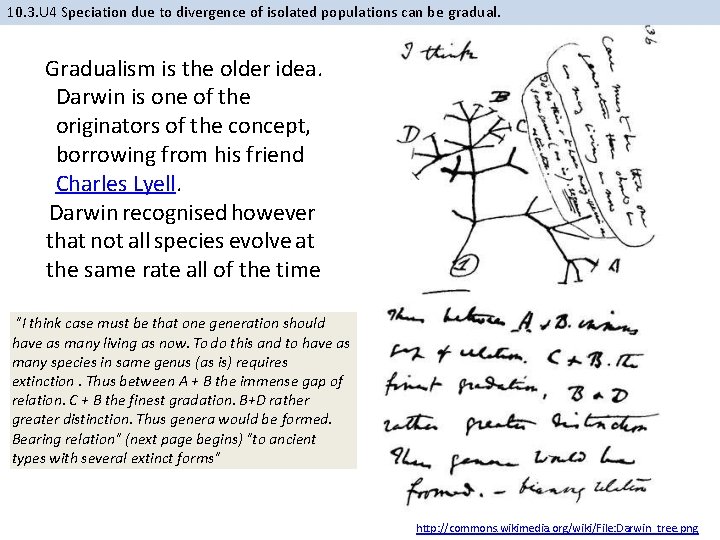 10.3.U4 Speciation due to divergence of isolated populations can be gradual.
Gradualism is the older idea.
Darwin is one of the
originators of the concept,
borrowing from his friend
Charles Lyell.
Darwin recognised however
that not all species evolve at
the same rate all of the time
"I think case must be that one generation should
have as many living as now. To do this and to have as
many species in same genus (as is) requires
extinction . Thus between A + B the immense gap of
relation. C + B the finest gradation. B+D rather
greater distinction. Thus genera would be formed.
Bearing relation" (next page begins) "to ancient
types with several extinct forms"
I think
36
Case must be that one
generation should be
as many living as now
To do this & to have many species in
same genus (as is) requires
extinction
B
D
C
A
1
Thus between A & B. immense
gap of relation. C & B. the
finest gradation, B & D
rather greater distinction
Thus genera would be
formed. — bearing relation
http://commons.wikimedia.org/wiki/File:Darwin_tree.png